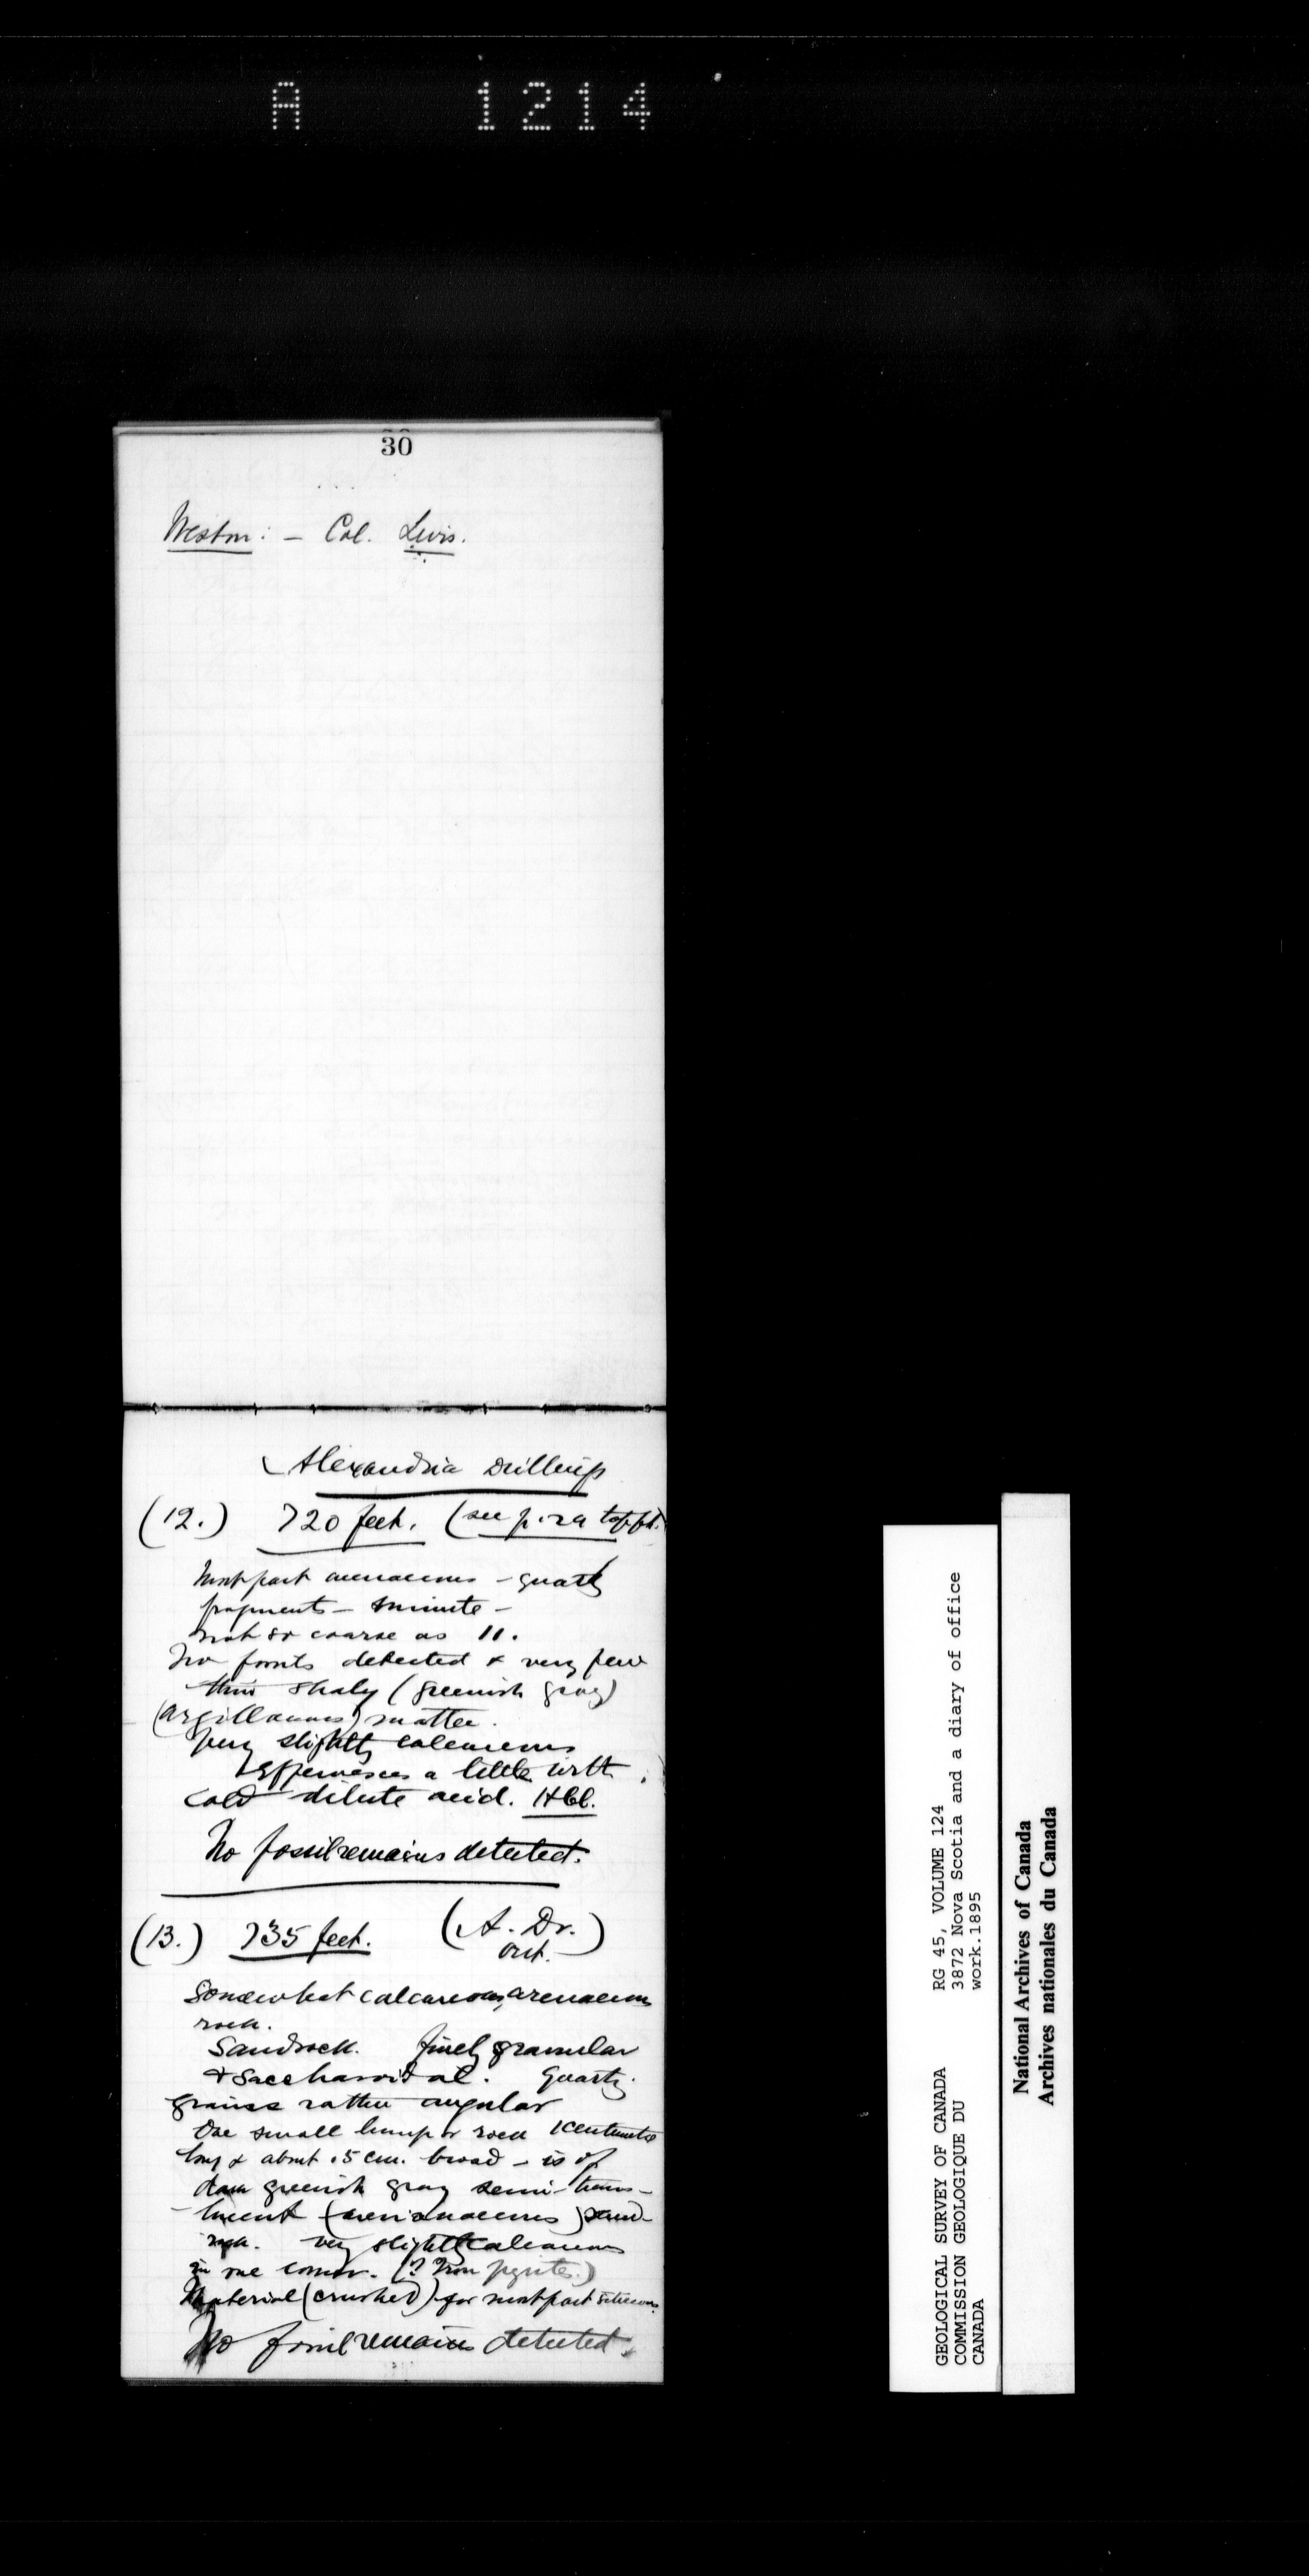 A 1214
30
Weston: — Col. Levis.
Alexandria Drillings
(12.) 720 feet. (see p.
Most part arenaceous — quartz
fragments — minute —
not so coarse as 11.
No fossils detected & very few
thin shaly (greenish gray)
(argillaceous) matter.
Very slightly calcareous
Effervesces a little with
cold dilute acid. HCl.
No fossil remains detected.
(13.) 735 feet. (A. Dr.)
Ont.
Somewhat calcareous, arenaceous
rock.
Sandrock. finely granular
& Saccharoidal. Quartz
grains rather angular
One small lump of rock 1 centimetre
long & about .5 cm. broad — is of
dark greenish gray semi-trans-
lucent (arenaceous) sand-
rock. very slightly calcareous
in one corner. (? Iron pyrites.)
Material (crushed) for most part siliceous.
No fossil remains detected.
GEOLOGICAL SURVEY OF CANADA
COMMISSION GEOLOGIQUE DU
CANADA
RG 45, VOLUME 124
3872 Nova Scotia and a diary of office
work.1895
National Archives of Canada
Archives nationales du Canada